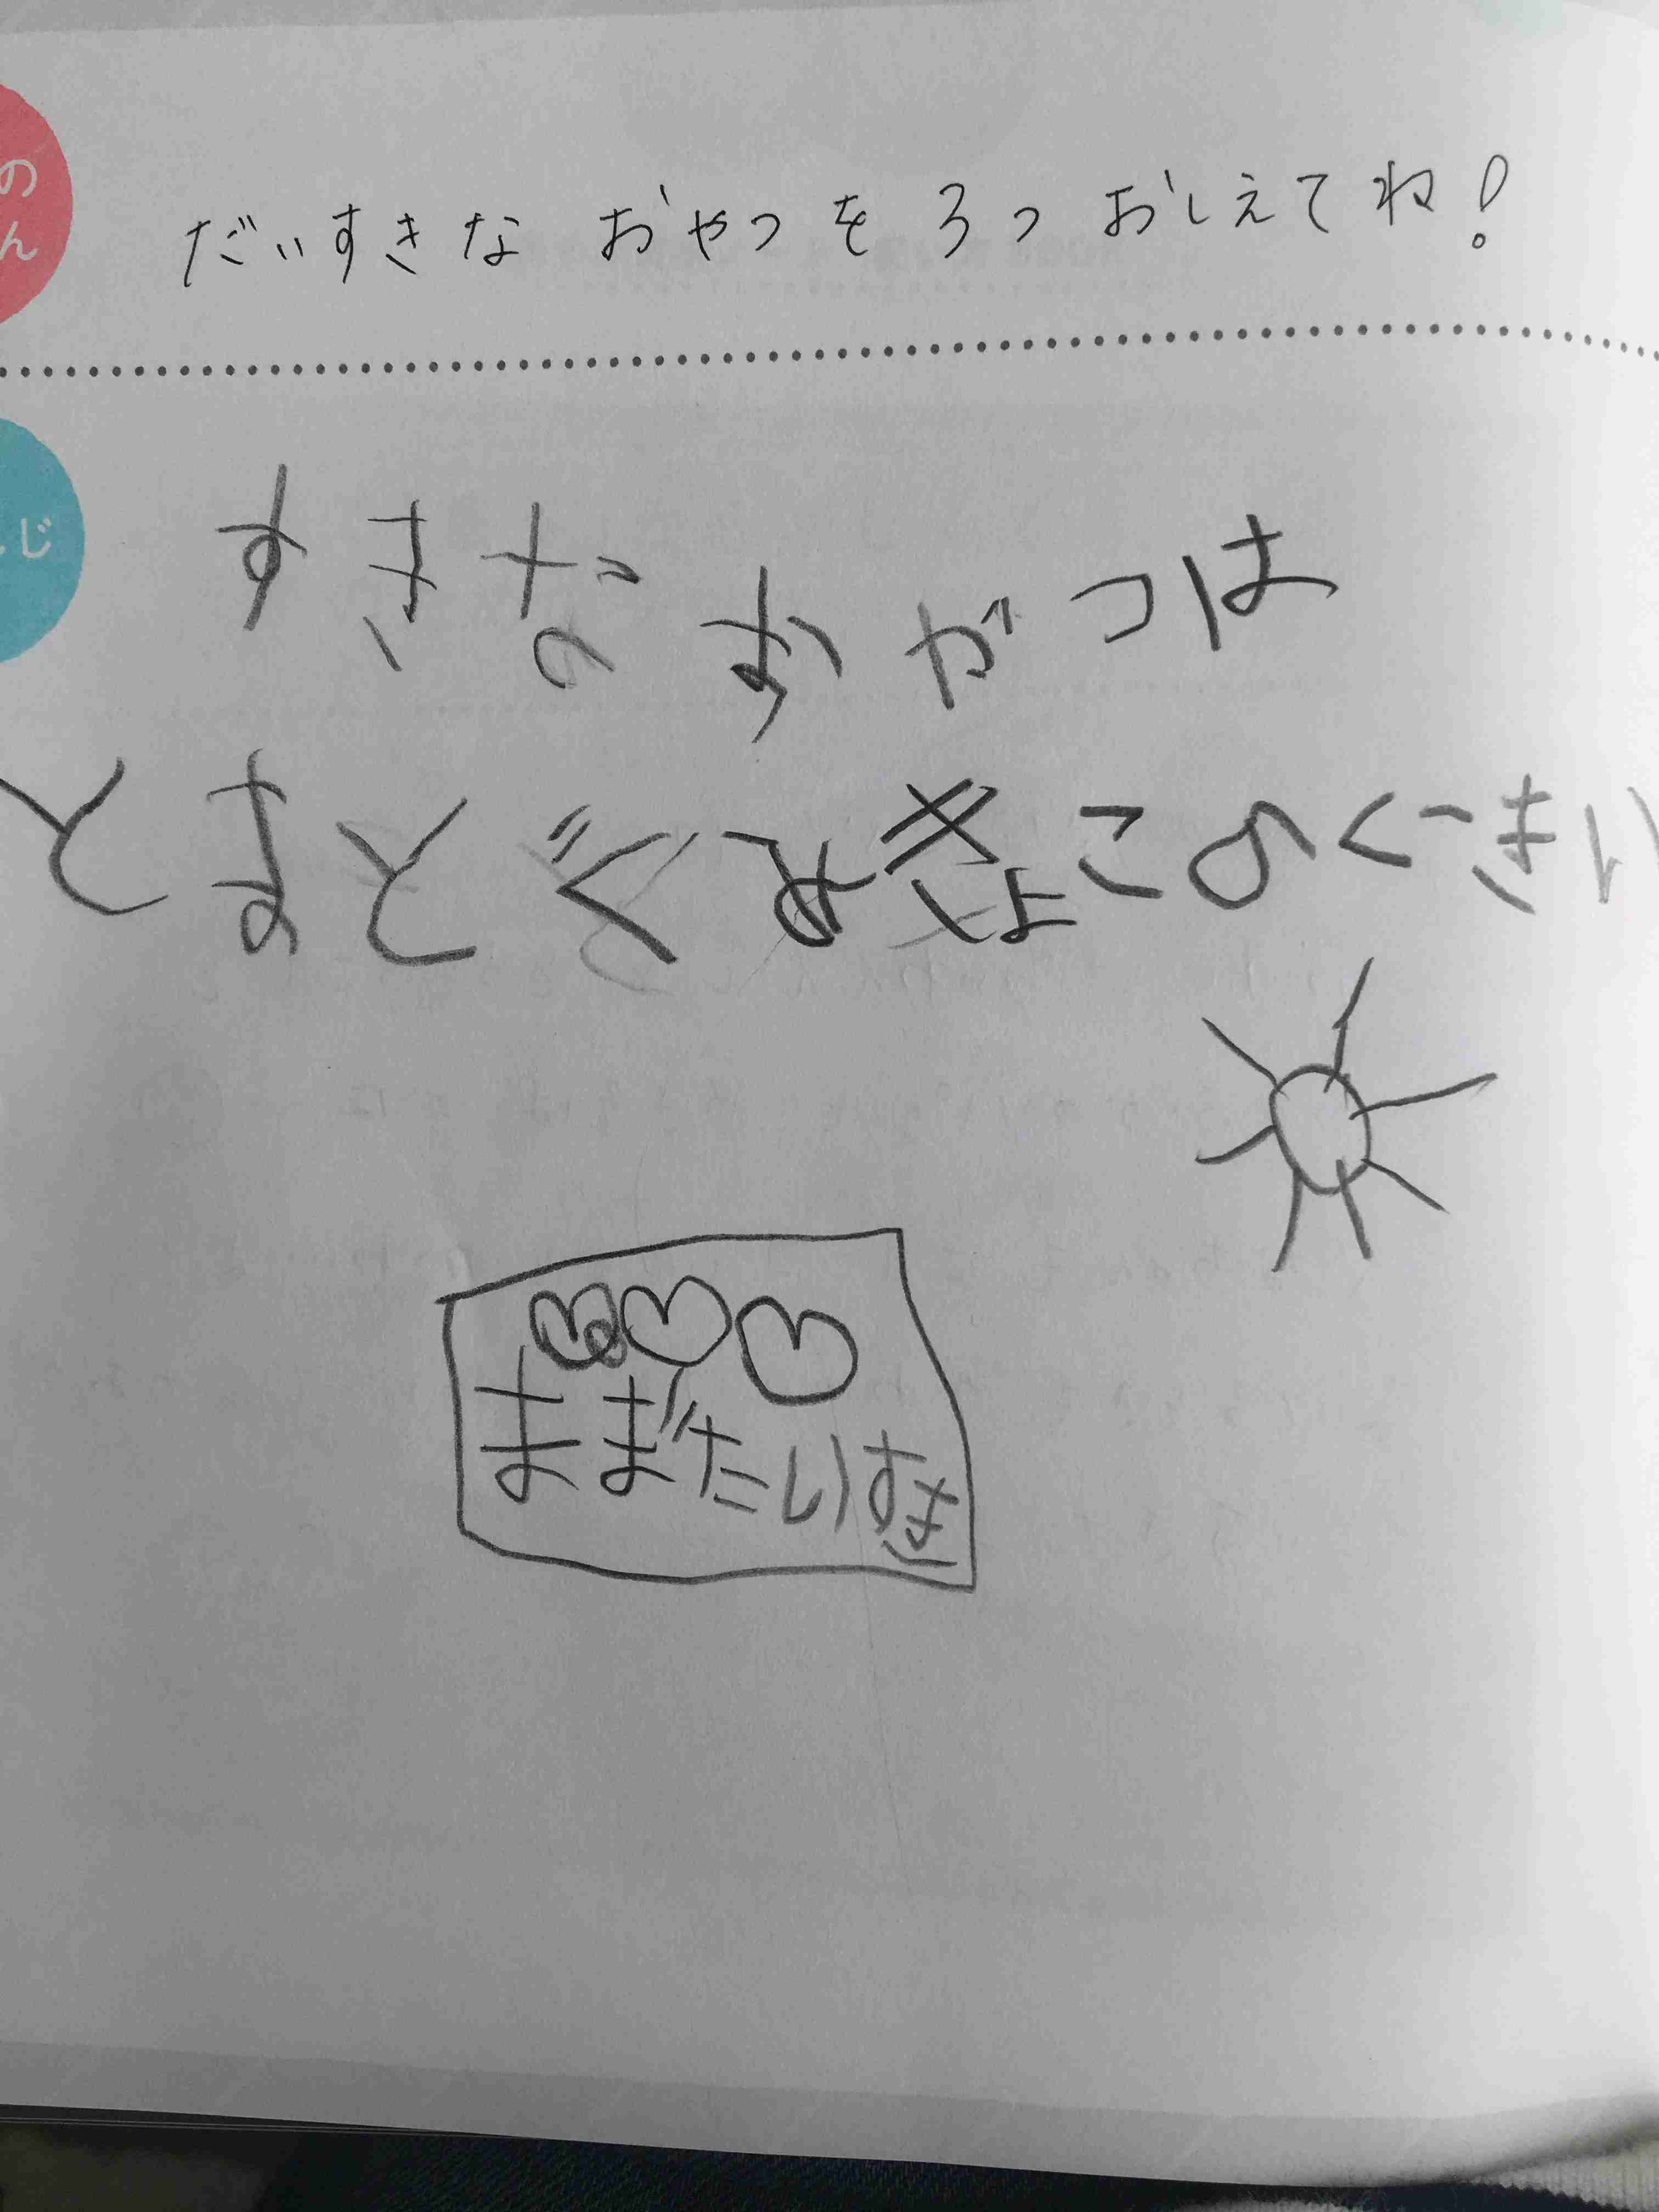 の
ん
だいすきな おやつを 3つ おしえてね!
じ
すきな おがつは
とまと ぐみ きょこの くっきい
まま だいすき